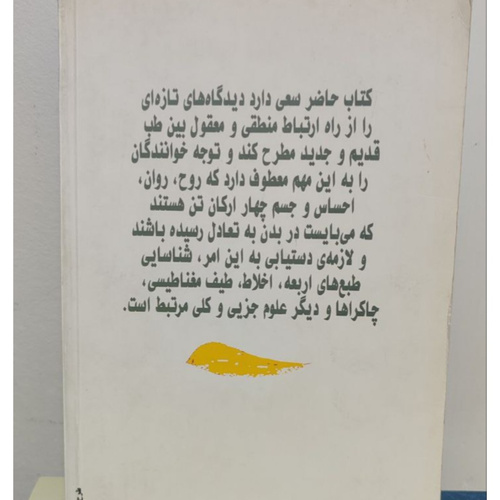 کتاب حاضر سعی دارد دیدگاه‌های تازه‌ای
را از راه ارتباط منطقی و معقول بین طب
قدیم و جدید مطرح کند و توجه خوانندگان
را به این مهم معطوف دارد که روح، روان،
احساس و جسم چهار ارکان تن هستند
که می‌بایست در بدن به تعادل رسیده باشند
و لازمه‌ی دستیابی به این امر، شناسایی
طبع‌های اربعه، اخلاط، طیف مغناطیسی،
چاکراها و دیگر علوم جزیی و کلی مرتبط است.